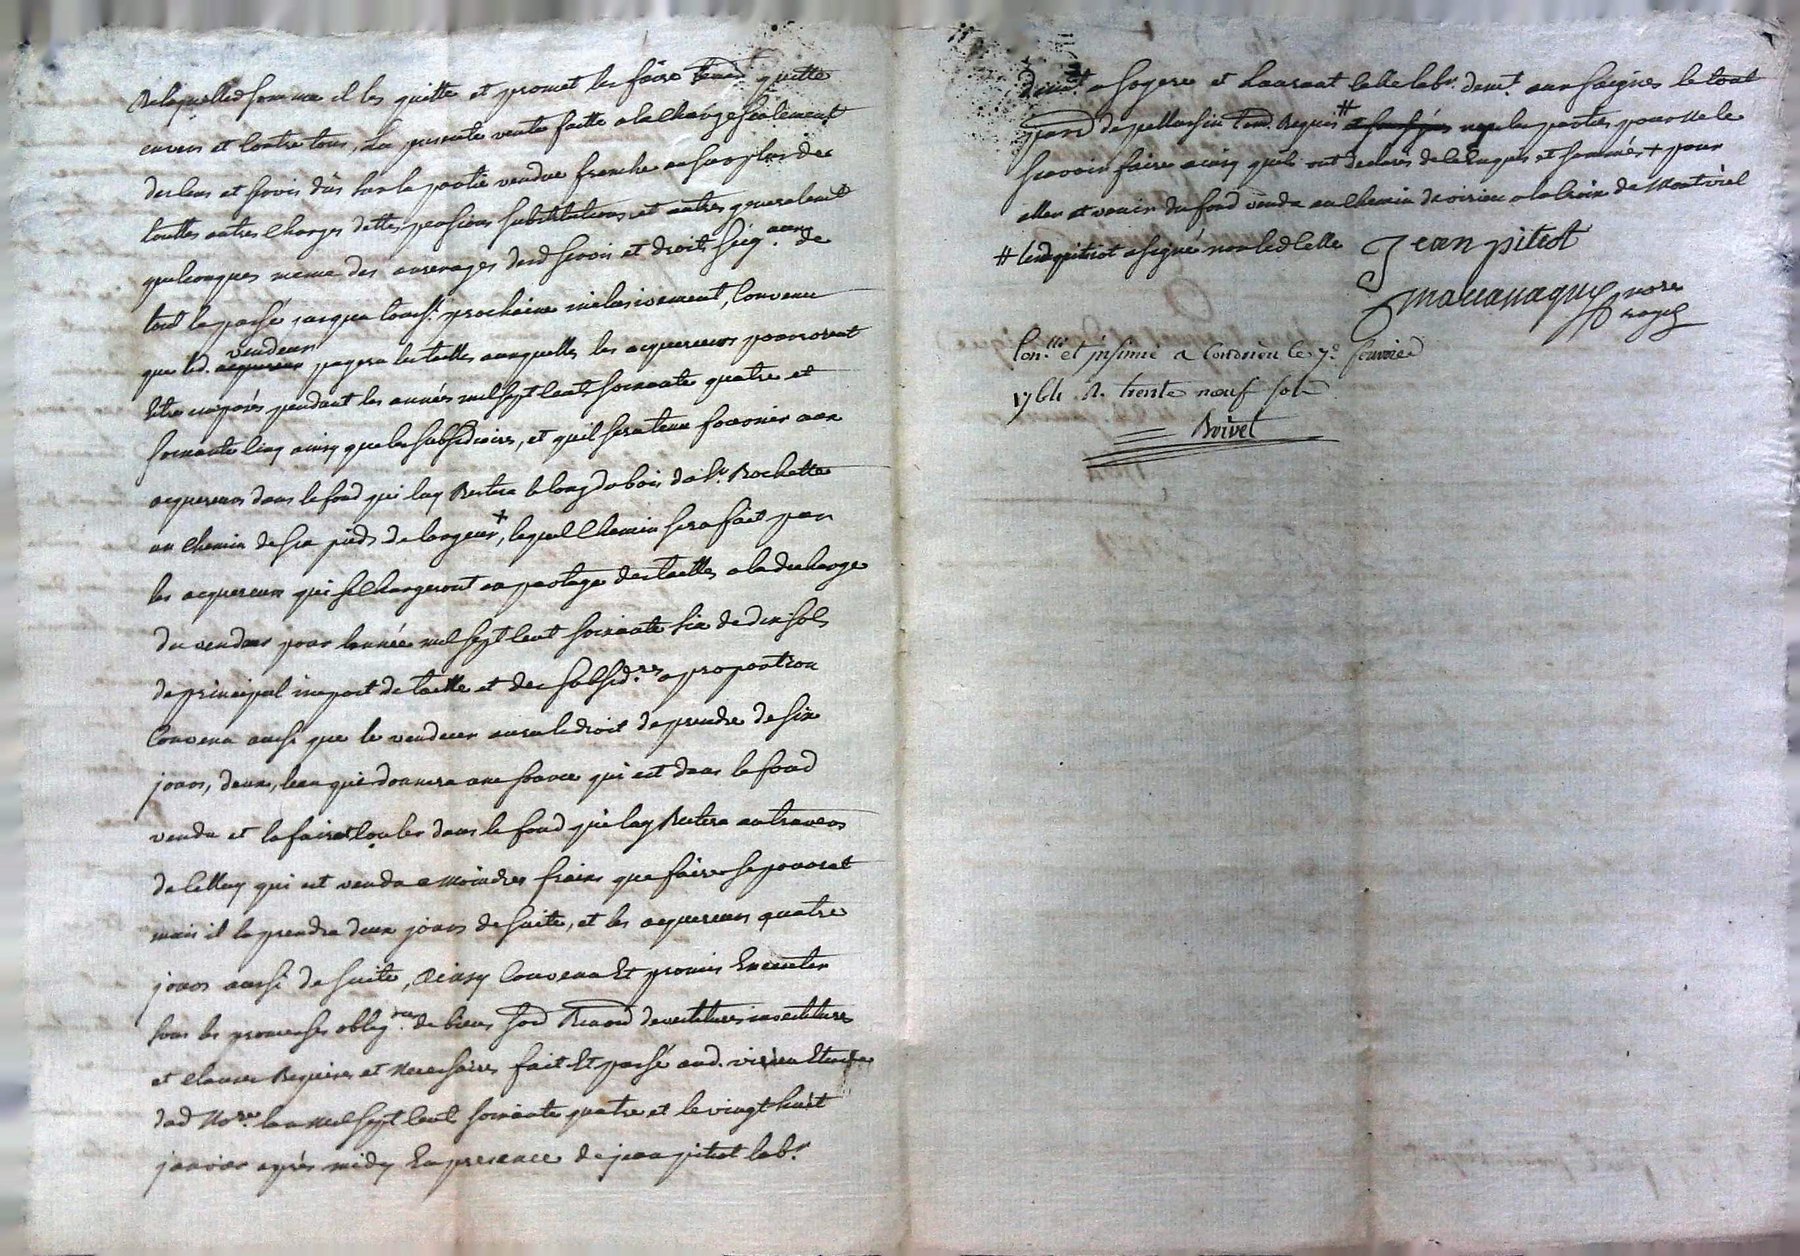 De laquelle somme il les quitte et promet les faire tenir quitte
envers et contre tous, La presente vente faitte a la charge seulement
des cens et servis dûs sur la partie vendue franche au surplus de
touttes autres charges dettes pensions substitutions et autres generalement
quelconques meme des arrerages desd servis et droits seig.aux de
tout le passé jusqua touss.t prochaine inclusivement, Convenu
que led. acquereur vendeur payera les tailles auxquelles les acquereurs pourroient
Etre imposés pendant les années mil sept cent soixante quatre et
soixante cinq ainsy que les subsidiaires, et quil sera tenu fournir aux
acquereurs dans le fond qui luy Restera le long du bois du s.r Rochette
un chemin de six pieds de largeur +, lequel Chemin sera fait par
les acquereurs qui se Chargeront au partage des tailles a la decharge
du vendeur pour lannée mil sept cent soixante six de dix sols
de principal impost de taille et des subsid.res a proportion
Convenu aussi que le vendeur aura le droit de prendre de six
jours, deux, leau qui donnera une source qui est dans le fond
vendu et la faire couler dans le fond qui luy Restera au travers
de celluy qui est vendu a moindres frais que faire se pourrat
mais il la prendra deux jours de suite, et les acquereurs quatre
jours aussi de suite, Ainsy Convenu Et promis Executer
sous les promesses oblig.ons de biens
et clauses Requises et necessaires fait Et passé aud. virieu Etude
dud No.re lan mil sept cent soixante quatre et le vingt huit
janvier après midy En presence de jean pitiot lab.r
demt. a et Laurant lab.r demt. aux le tout
pard de pellussin Requis # non les parties pour ne le
scavoir faire ainsy quils ont declaré de ce Enquis et sommés + pour
aller et venir du fond vendu au chemin de virieu a la croix de Montviel
# led pitiot a signé non led Celle Jean pitiot
nore
royal
Con.llé et insinué a Condrieu le 7.e fevrier
1764 R. trente neuf sols
Boivet